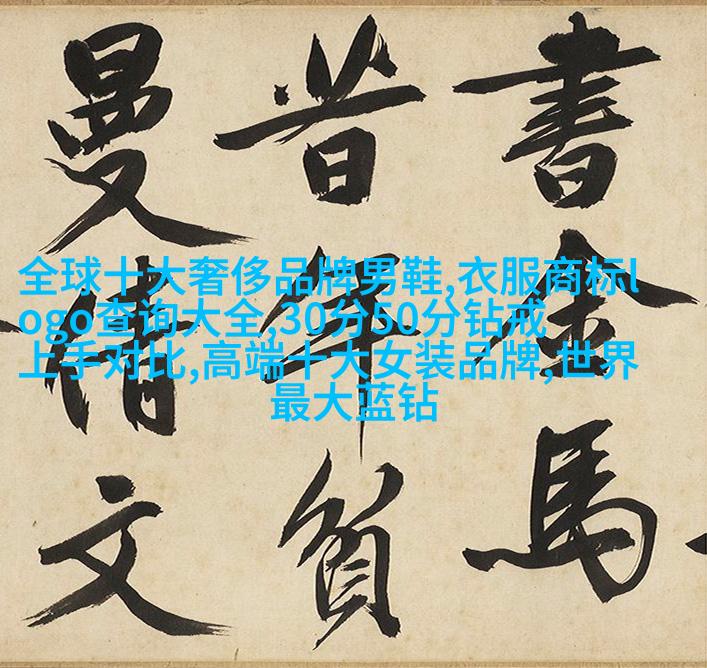 書金馬
昔年負
曼倩文
全球十大奢侈品牌男鞋,衣服商标l
ogo查询大全,30分50分钻戒
上手对比,高端十大女装品牌,世界
最大蓝钻